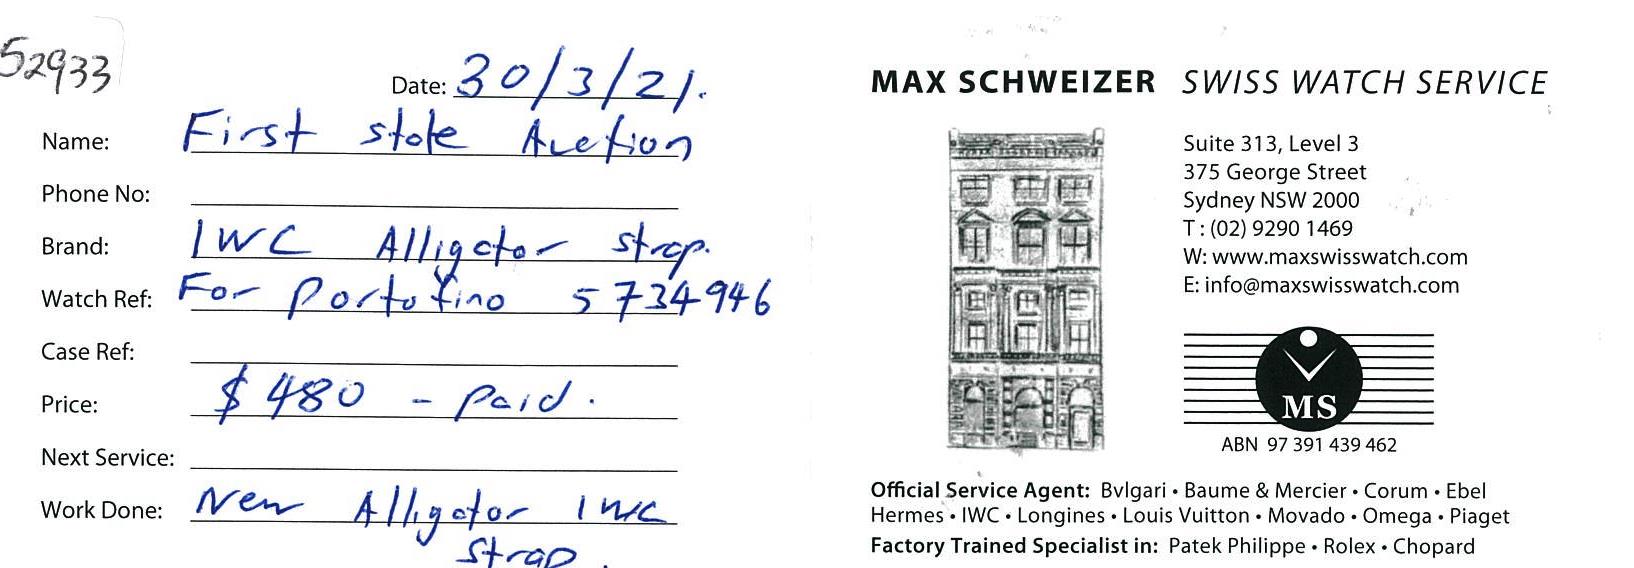 52933
Date: 30/3/21.
Name: First stole Auction
Phone No:
Brand: IWC Alligator strap.
Watch Ref: For Portofino 5734946
Case Ref:
Price: $480 - paid.
Next Service:
Work Done: New Alligator IWC
strap.
MAX SCHWEIZER SWISS WATCH SERVICE
Suite 313, Level 3
375 George Street
Sydney NSW 2000
T: (02) 9290 1469
W: www.maxswisswatch.com
E: info@maxswisswatch.com
MS
ABN 97 391 439 462
Official Service Agent: Bvlgari • Baume & Mercier • Corum • Ebel
Hermes • IWC • Longines • Louis Vuitton • Movado • Omega • Piaget
Factory Trained Specialist in: Patek Philippe • Rolex • Chopard